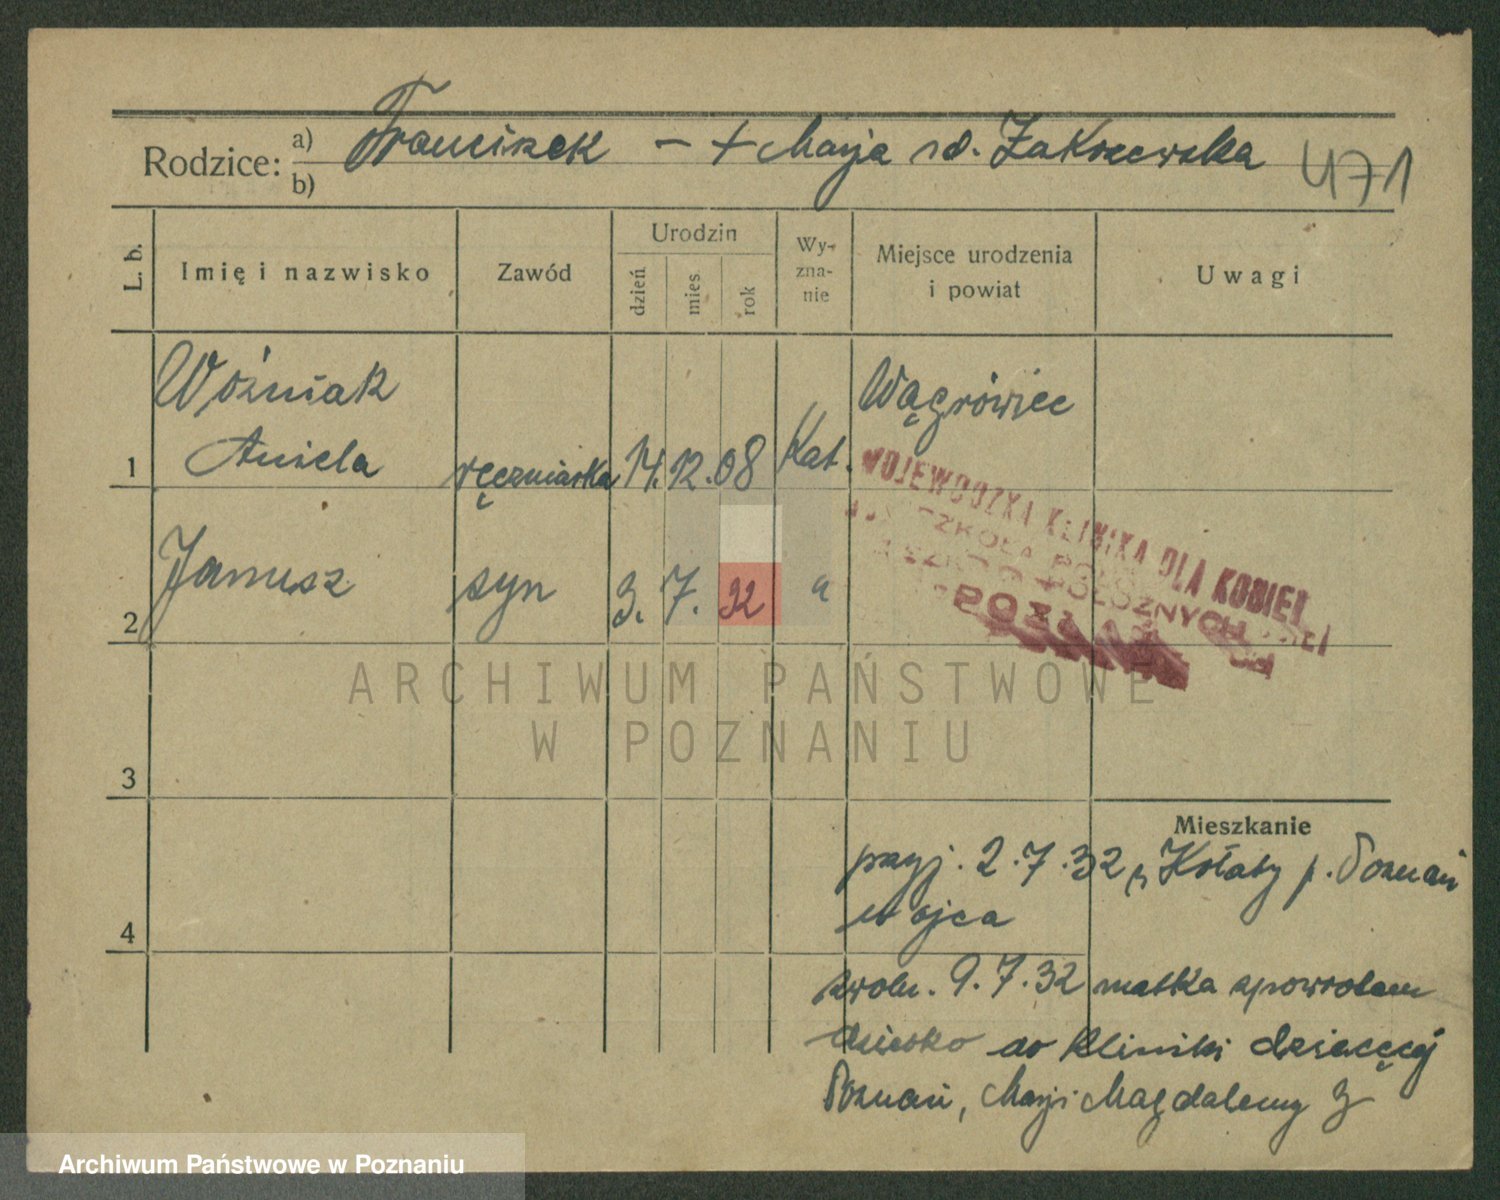 Rodzice: a) Franciszek – + Marja rd. Zakrzewska 471
b)
L. b.
Imię i nazwisko
Zawód
Urodzin
dzień
mies.
rok
Wy-
zna-
nie
Miejsce urodzenia
i powiat
Uwagi
Woźniak
Wągrówiec
1 Aniela ręczniarka 14. 12. 08 Kat.
WOJEWODZKA KLINIKA DLA KOBIET
POZNAŃ
2 Janusz syn 3. 7. 32 "
ARCHIWUM PAŃSTWOWE
W POZNANIU
3
Mieszkanie
przyj. 2.7.32 Kołaty p. Poznań
u ojca
4
zwoln. 9.7.32 matka zpowrotem
dziecko do kliniki dziecęcej
Poznań, Marji Magdaleny 3
Archiwum Państwowe w Poznaniu